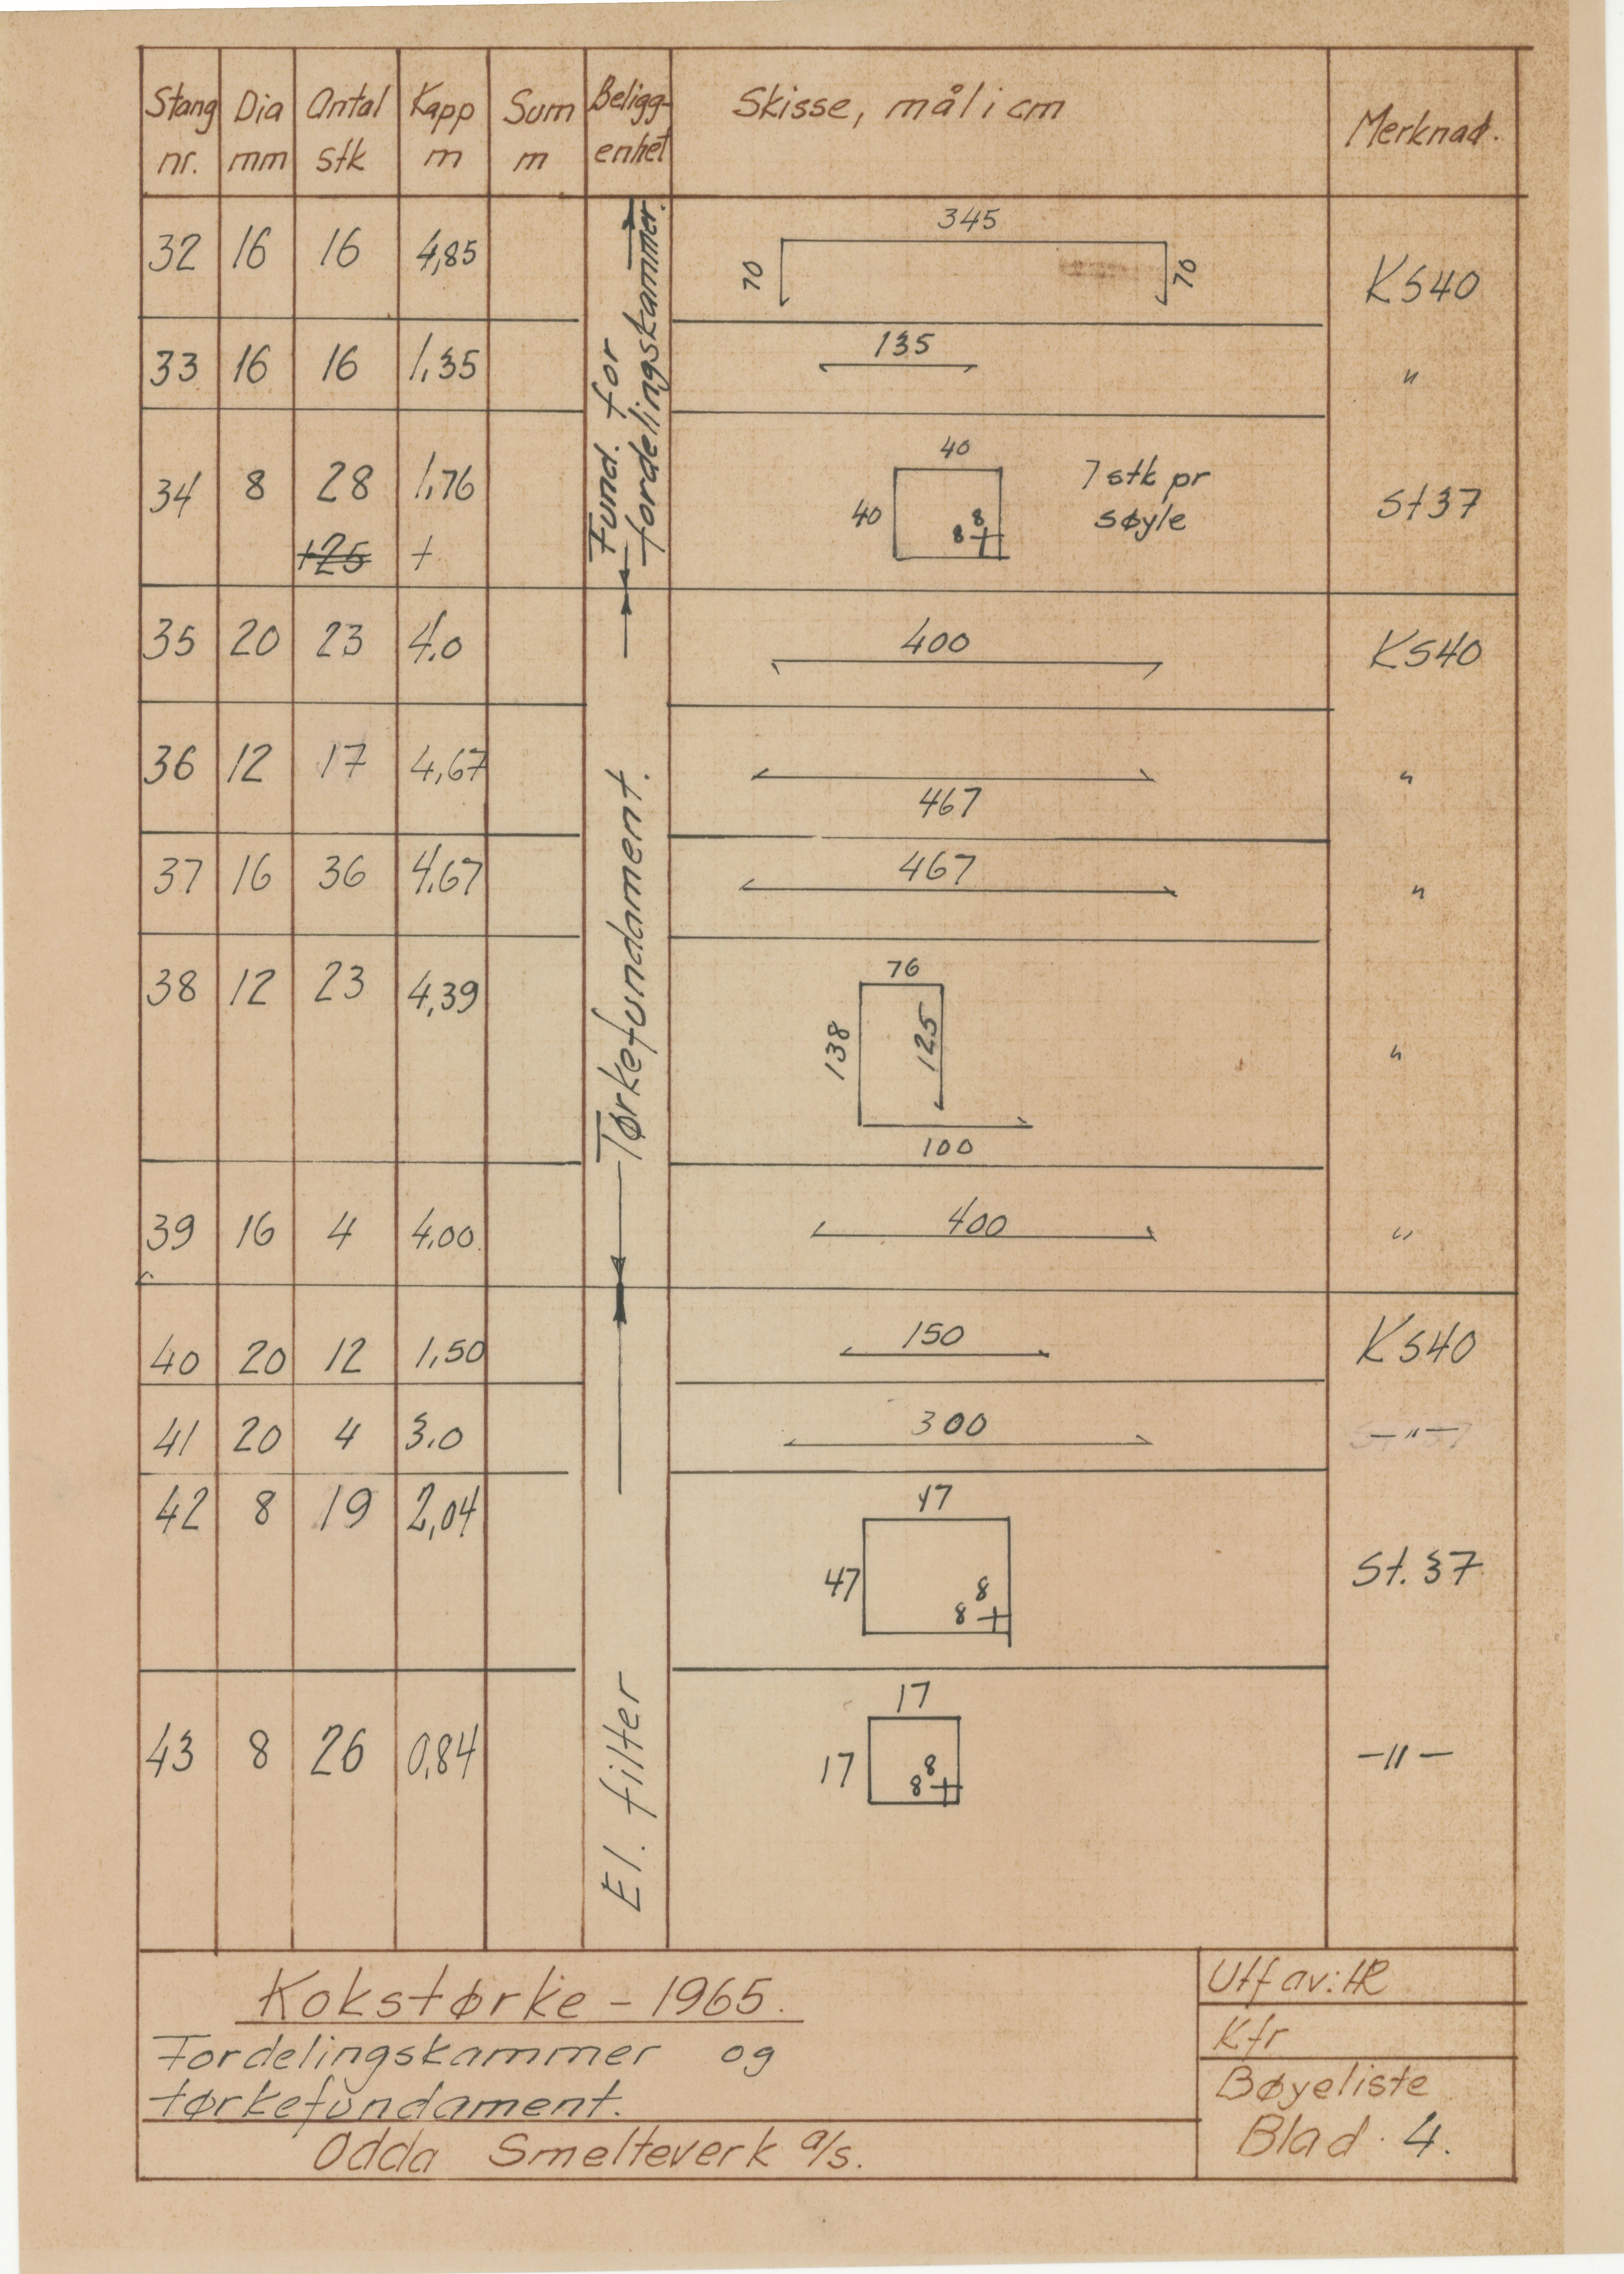 Stang Dia Antal Kapp Sum Beligg- Skisse, mål i cm Merknad.
nr. mm stk m m enhet
Fund. for
fordelingskammer.
345
32 16 16 4,85 70 70 KS40
135
33 16 16 1,35 "
40
34 8 28 1,76 40 8 7 stk pr St37
8 søyle
+25 +
35 20 23 4,0 400 KS40
Tørkefundament.
36 12 17 4,67 467 "
37 16 36 4,67 467 "
76
38 12 23 4,39 138 125 "
100
39 16 4 4,00 400 "
40 20 12 1,50 150 KS40
41 20 4 3,0 300 -"-
El. filter
47
42 8 19 2,04 47 8 St. 37
8
17
43 8 26 0,84 17 8 -"-
8
Kokstørke - 1965.
Fordelingskammer og
tørkefundament.
Odda Smelteverk a/s.
Utf av: HR
Kfr
Bøyeliste
Blad. 4.